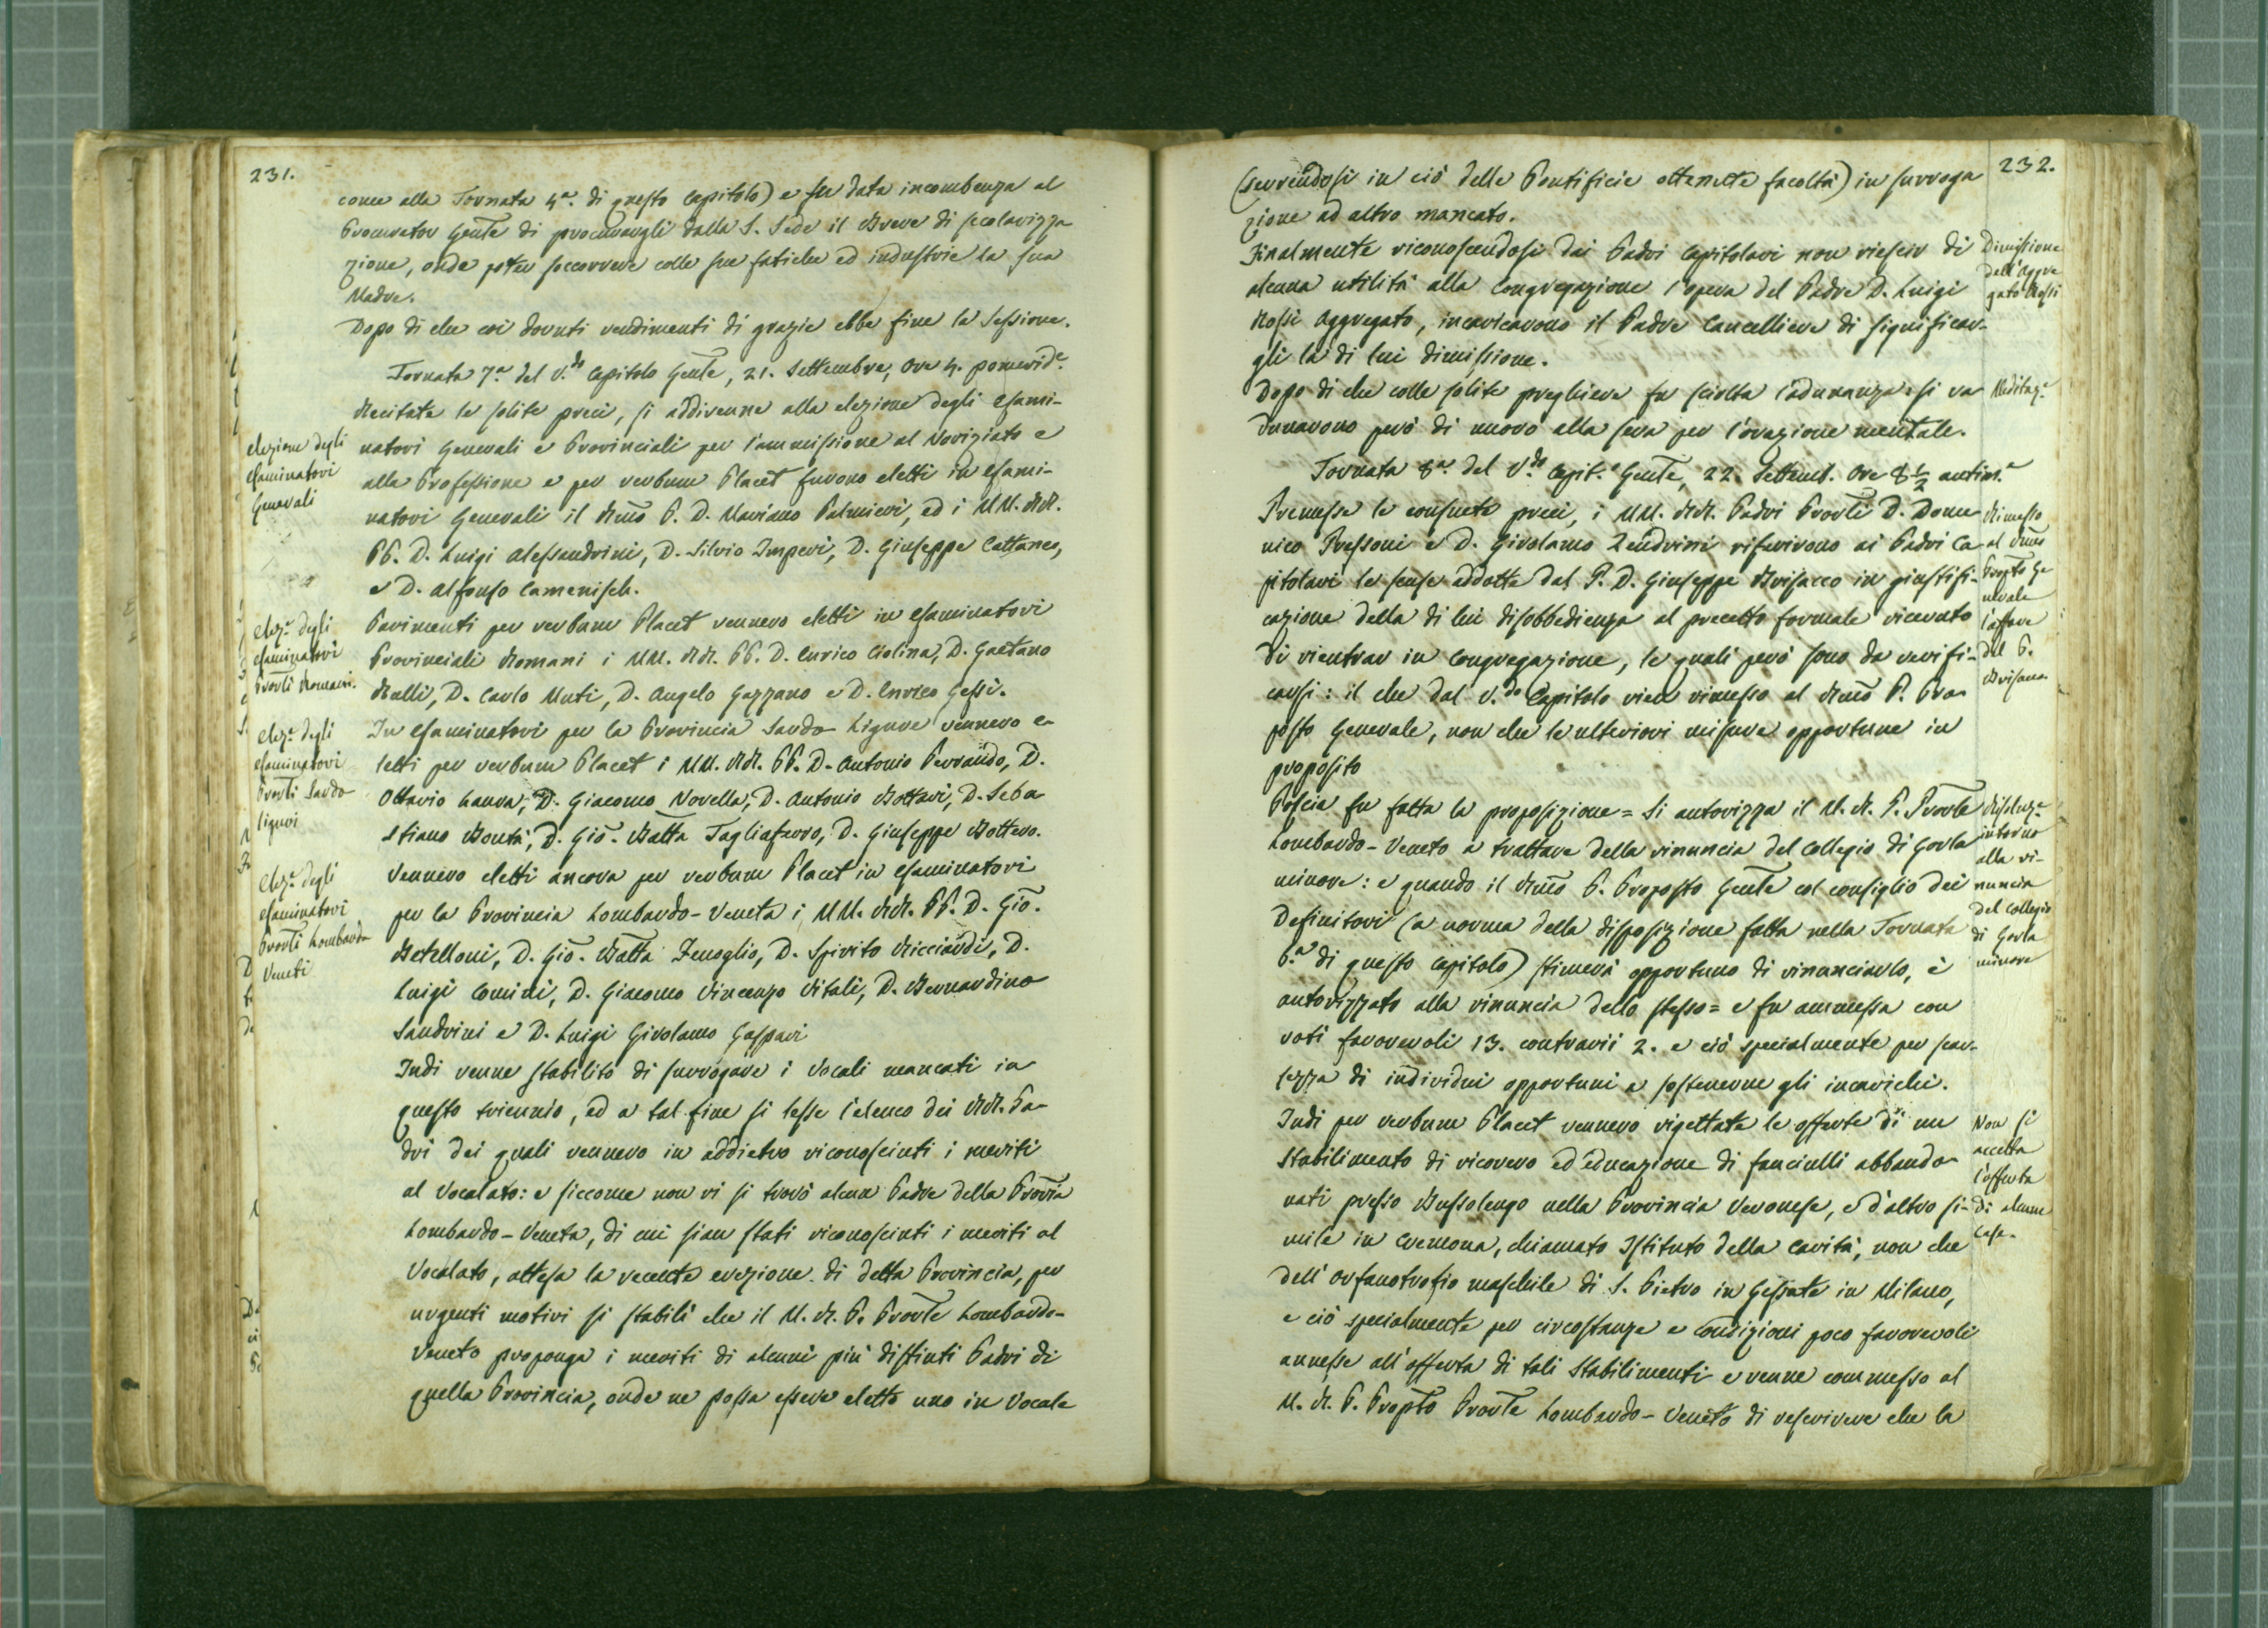 231.
come alla Tornata 4.a di questo Capitolo) e fu data incombenza al
Procurator Gen̄te di procurargli dalla S. Sede il Breve di secolarizza
zione, onde poter soccorrere colle sue fatiche ed industrie la sua
Madre.
Dopo di che coi dovuti rendimenti di grazie ebbe fine la Sessione.
Tornata 7.a del V.do Capitolo Gen̄le, 21. Settembre, Ore 4. pomerid.e
Recitate le solite preci, si addivenne alla elezione degli Esami-
elezione degli
esaminatori
Generali
natori Generali e Provinciali per l'ammissione al Noviziato e
alla Professione e per verbum Placet furono eletti in Esami-
natori Generali il Rm̄o P. D. Mariano Palmieri, ed i MM. RR.
PP. D. Luigi Alessandrini, D. Silvio Imperi, D. Giuseppe Cattaneo,
e D. Alfonso Camenisch.
Elez.e degli
esaminatori
Prov̄li Romani.
Parimenti per verbum Placet vennero eletti in Esaminatori
Provinciali Romani i MM. RR. PP. D. Enrico Ciolina, D. Gaetano
Rulli, D. Carlo Muti, D. Angelo Gazzano e D. Enrico Gessi.
Elez.e degli
esaminatori
Prov̄li Sardo
liguri
In Esaminatori per la Provincia Sardo-Ligure vennero e-
letti per verbum Placet i MM. RR. PP. D. Antonio Ferrando, D.
Ottavio Laura, D. Giacomo Novella, D. Antonio Bottari, D. Seba
stiano Bontà, D. Gio. Batta Tagliaferro, D. Giuseppe Bottero.
Elez.e degli
esaminatori
Prov̄li Lombardo
Veneti
Vennero eletti ancora per verbum Placet in Esaminatori
per la Provincia Lombardo-Veneta i MM. RR. PP. D. Gio.
Betelloni, D. Gio. Batta Fenoglio, D. Spirito Ricciardi, D.
Luigi Comini, D. Giacomo Vincenzo Vitali, D. Bernardino
Sandrini e D. Luigi Girolamo Gaspari
Indi venne stabilito di surrogare i Vocali mancati in
questo triennio, ed a tal fine si lesse l'elenco dei RR. Pa-
dri dei quali vennero in addietro riconosciuti i meriti
al Vocalato: e siccome non vi si trovò alcun Padre della Prov̄ia
Lombardo-Veneta, di cui sian stati riconosciuti i meriti al
Vocalato, attesa la recente erezione di detta Provincia, per
urgenti motivi si stabilì che il M. R. P. Prov̄le Lombardo-
Veneto proponga i meriti di alcuni più distinti Padri di
quella Provincia, onde ne possa essere eletto uno in Vocale
232.
(servendosi in ciò delle Pontificie ottenute facoltà) in surroga
zione ad altro mancato.
Dimissione
dell'Aggre
gato Rossi
Finalmente riconoscendosi dai Padri Capitolari non riescir di
alcuna utilità alla Congregazione l'opera del Padre D. Luigi
Rossi Aggregato, incaricarono il Padre Cancelliere di significar-
gli la di lui dimissione.
Meditaz.e
Dopo di che colle solite preghiere fu sciolta l'adunanza: si ra
dunarono però di nuovo alla sera per l'orazione mentale.
Tornata 8.a del V.do Capit.o Gen̄le, 22. Settemb. Ore 8 1/2 antim.e
Rimesso
al Rm̄o
Prop̄to Ge
nerale
l'affare
del P.
Brisacco
Premesse le consuete preci, i MM. RR. Padri Prov̄li D. Dome
nico Pressoni e D. Girolamo Zendrini riferirono ai Padri Ca
pitolari le scuse addotte dal P. D. Giuseppe Brisacco in giustifi-
cazione della di lui disobbedienza al precetto formale ricevuto
di rientrar in Congregazione, le quali però sono da verifi-
carsi: il che dal V.do Capitolo vien rimesso al Rm̄o P. Pro-
posto Generale, non che le ulteriori misure opportune in
proposito
Risoluz.e
intorno
alla ri-
nuncia
del Collegio
di Gorla
minore
Poscia fu fatta la proposizione = Si autorizza il M. R. P. Prov̄le
Lombardo-Veneto a trattare della rinuncia del Collegio di Gorla
minore: e quando il Rm̄o P. Proposto Gen̄le col consiglio dei
Definitori (a norma della disposizione fatta nella Tornata
6.a di questo Capitolo) stimerà opportuno di rinunciarlo, è
autorizzato alla rinuncia dello stesso = e fu ammessa con
voti favorevoli 13. contrarii 2. e ciò specialmente per scar-
sezza di individui opportuni a sostenerne gli incarichi.
Non si
accetta
l'offerta
di alcune
Case.
Indi per verbum Placet vennero rigettate le offerte di un
Stabilimento di ricovero ed educazione di fanciulli abbando-
nati presso Bussolengo nella Provincia Veronese, e d'altro si-
mile in Cremona, chiamato Istituto della Carità, non che
dell'Orfanotrofio maschile di S. Pietro in Gessate in Milano,
e ciò specialmente per circostanze e condizioni poco favorevoli
annesse all'offerta di tali Stabilimenti e venne commesso al
M. R. P. Prop̄to Prov̄le Lombardo-Veneto di rescrivere che la